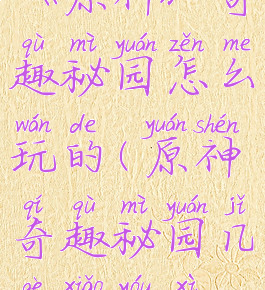 《原神》奇
qù mì yuán zěn me
趣秘园怎么
wán de yuán shén
玩的(原神
qí qù mì yuán jǐ
奇趣秘园几
gè xiǎo yóu xì